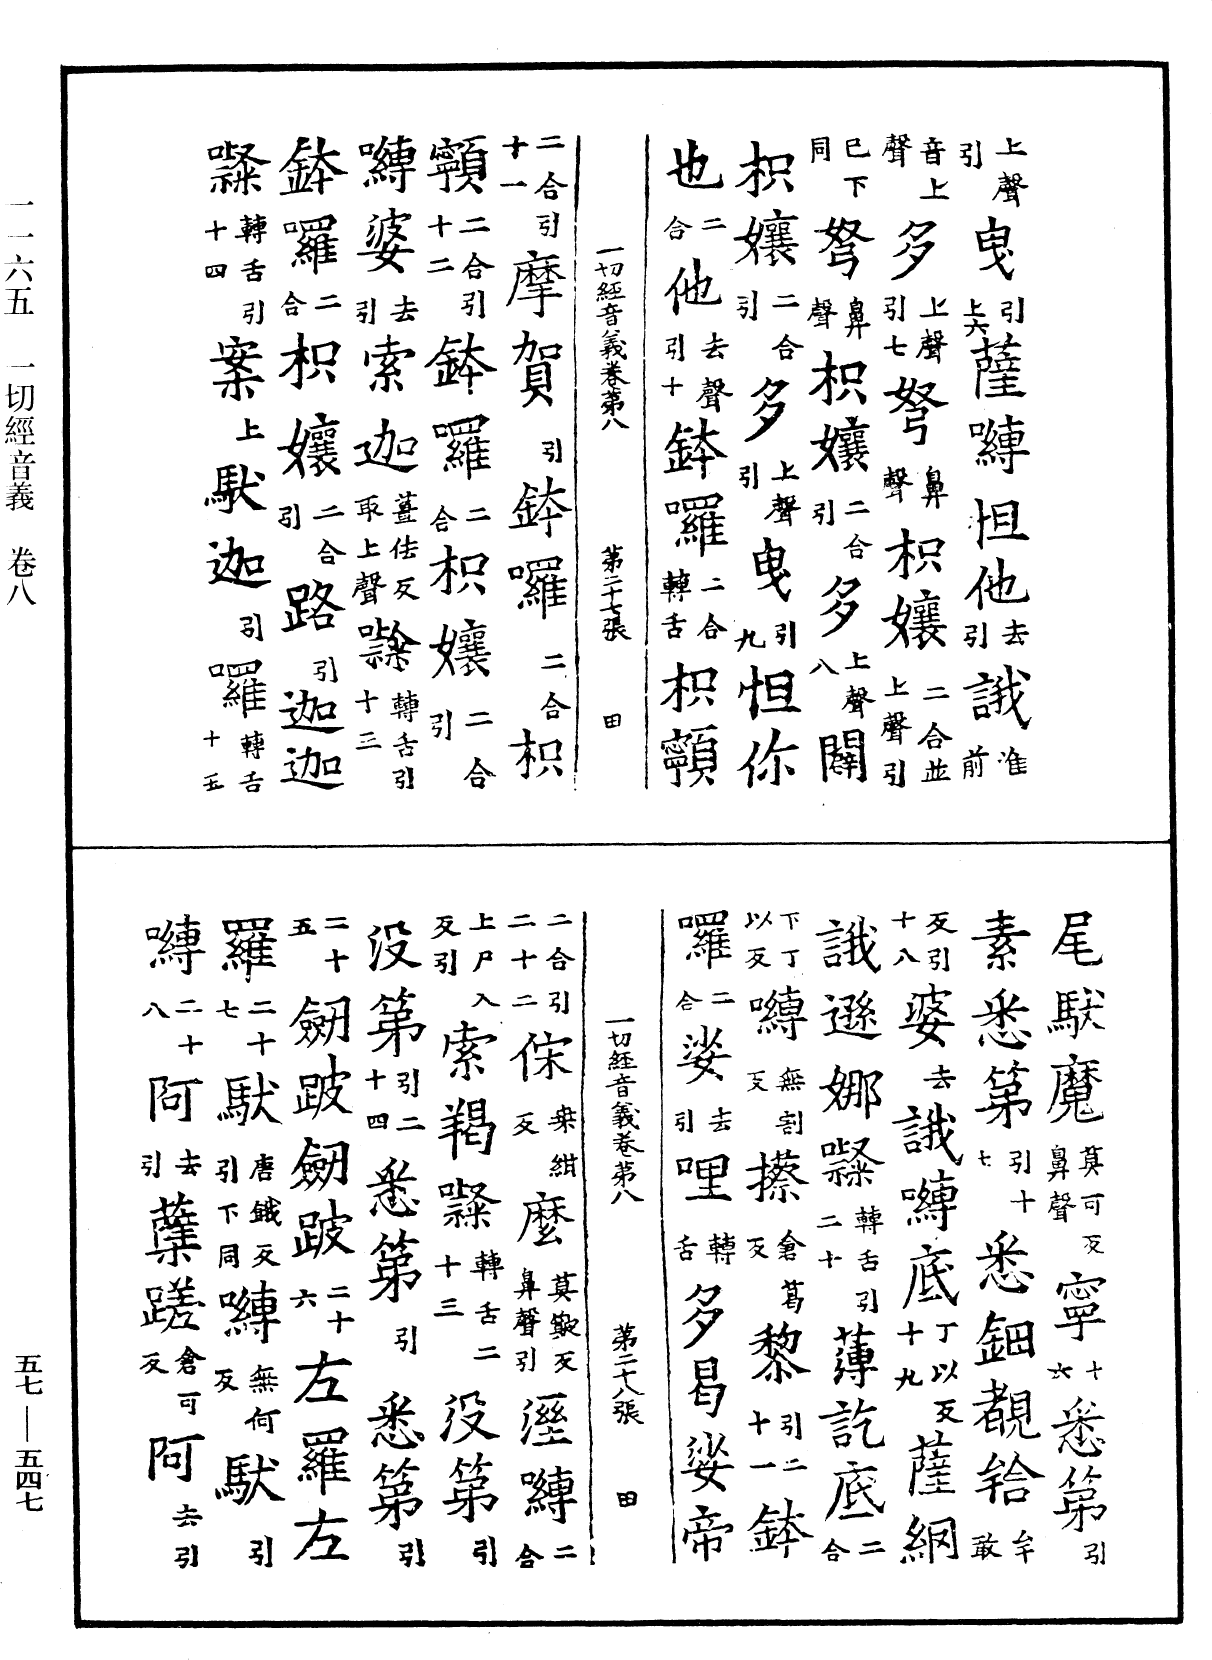 上聲引曳引上六薩嚩怛他去引誐准前
音上聲多上聲引七弩鼻聲枳孃二合並上聲引
巳下同弩鼻聲枳孃二合引多上聲八闢
枳孃二合引多上聲引曳引九怛你
也二合他去聲引十鉢囉二合轉舌枳𩕳
一切經音義卷第八 第二十七張 田
二合引十一摩賀引鉢囉二合枳
𩕳二合引十二鉢囉二合枳孃二合引
嚩婆去引索迦薑佉反取上聲㘑轉舌引十三
鉢囉二合枳孃二合引路引迦迦
㘑轉舌引十四案上馱迦引囉轉舌十五
尾馱魔莫可反鼻聲寧十六悉第引
素悉第引十七悉鈿覩牟敢
反引十八婆去誐嚩底丁以反十九薩網
誐遜娜㘑轉舌引二十薄訖底二合
下丁以反嚩無割反攃倉葛反黎引二十一鉢
囉二合娑去引哩轉舌多曷娑帝
一切經音義卷第八 第二十八張 田
二合引二十二㑌桒紺反麼莫敤反鼻聲引溼嚩二合
上尸入反引索羯㘑轉舌二十三没第引
没第引二十四悉第引悉第引
二十五劒跛劒跛二十六左羅左
羅二十七馱唐鐵反引下同嚩無何反馱引
嚩二十八阿去引蘗蹉倉可反阿去引
一一六五 一切經音義 卷八
五七—五四七